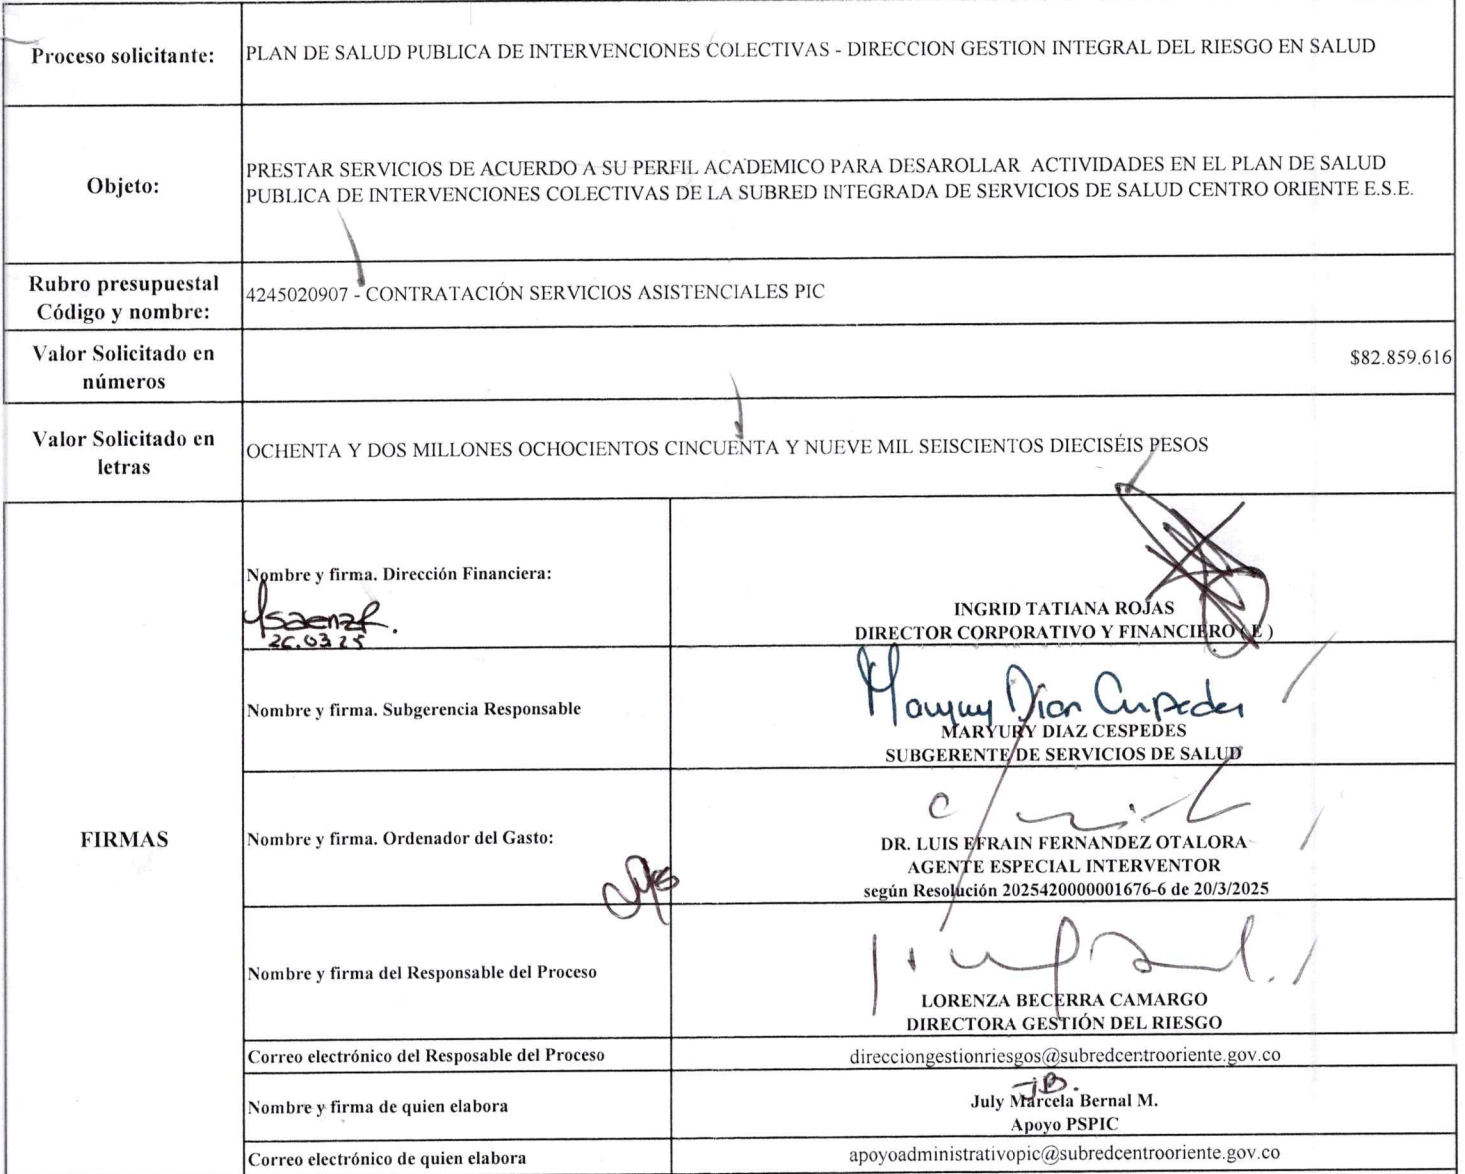 Proceso solicitante:
PLAN DE SALUD PUBLICA DE INTERVENCIONES COLECTIVAS - DIRECCION GESTION INTEGRAL DEL RIESGO EN SALUD
Objeto:
PRESTAR SERVICIOS DE ACUERDO A SU PERFIL ACADEMICO PARA DESAROLLAR ACTIVIDADES EN EL PLAN DE SALUD
PUBLICA DE INTERVENCIONES COLECTIVAS DE LA SUBRED INTEGRADA DE SERVICIOS DE SALUD CENTRO ORIENTE E.S.E.
Rubro presupuestal
Código y nombre:
4245020907 - CONTRATACIÓN SERVICIOS ASISTENCIALES PIC
Valor Solicitado en
números
$82.859.616
Valor Solicitado en
letras
OCHENTA Y DOS MILLONES OCHOCIENTOS CINCUENTA Y NUEVE MIL SEISCIENTOS DIECISÉIS PESOS
FIRMAS
Nombre y firma. Dirección Financiera:
Ysaenzf.
26.03.25
INGRID TATIANA ROJAS
DIRECTOR CORPORATIVO Y FINANCIERO ( E )
Nombre y firma. Subgerencia Responsable
Maryury Diaz Cespedes
MARYURY DIAZ CESPEDES
SUBGERENTE DE SERVICIOS DE SALUD
Nombre y firma. Ordenador del Gasto:
DR. LUIS EFRAIN FERNANDEZ OTALORA
AGENTE ESPECIAL INTERVENTOR
según Resolución 2025420000001676-6 de 20/3/2025
Nombre y firma del Responsable del Proceso
LORENZA BECERRA CAMARGO
DIRECTORA GESTIÓN DEL RIESGO
Correo electrónico del Resposable del Proceso
direcciongestionriesgos@subredcentrooriente.gov.co
Nombre y firma de quien elabora
J.B.
July Marcela Bernal M.
Apoyo PSPIC
Correo electrónico de quien elabora
apoyoadministrativopic@subredcentrooriente.gov.co